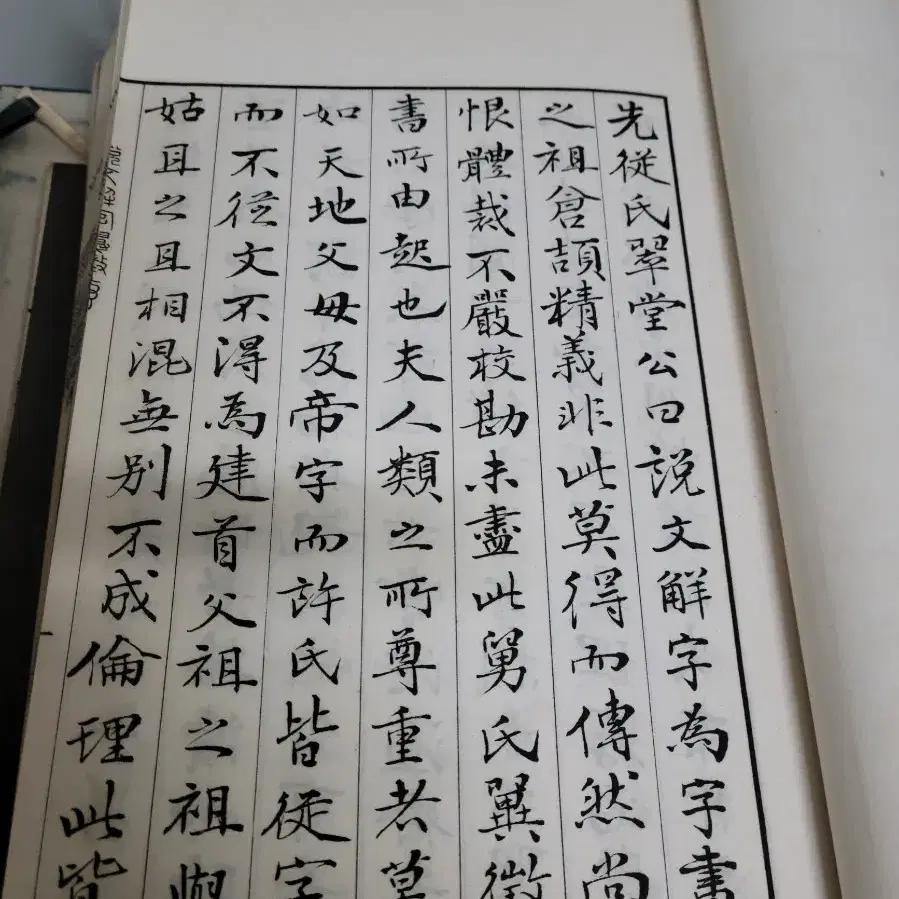 先從氏翠堂公曰說文解字為字書
之祖倉頡精義非此莫得而傳然尚
恨體裁不嚴校勘未盡此舅氏翼徵
書所由起也夫人類之所尊重者莫
如天地父母及帝字而許氏皆從字
而不從文不得為建首父祖之祖與
姑且之且相混無別不成倫理此皆